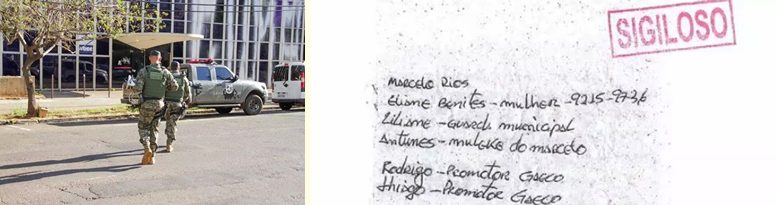 SIGILOSO
MARCELO RIOS
Eliane Benites - mulher - 9215-9736
Eliane - Guarda municipal
Antunes - muleke do marcelo
Rodrigo - Promotor GAECO
thiago - Promotor GAECO